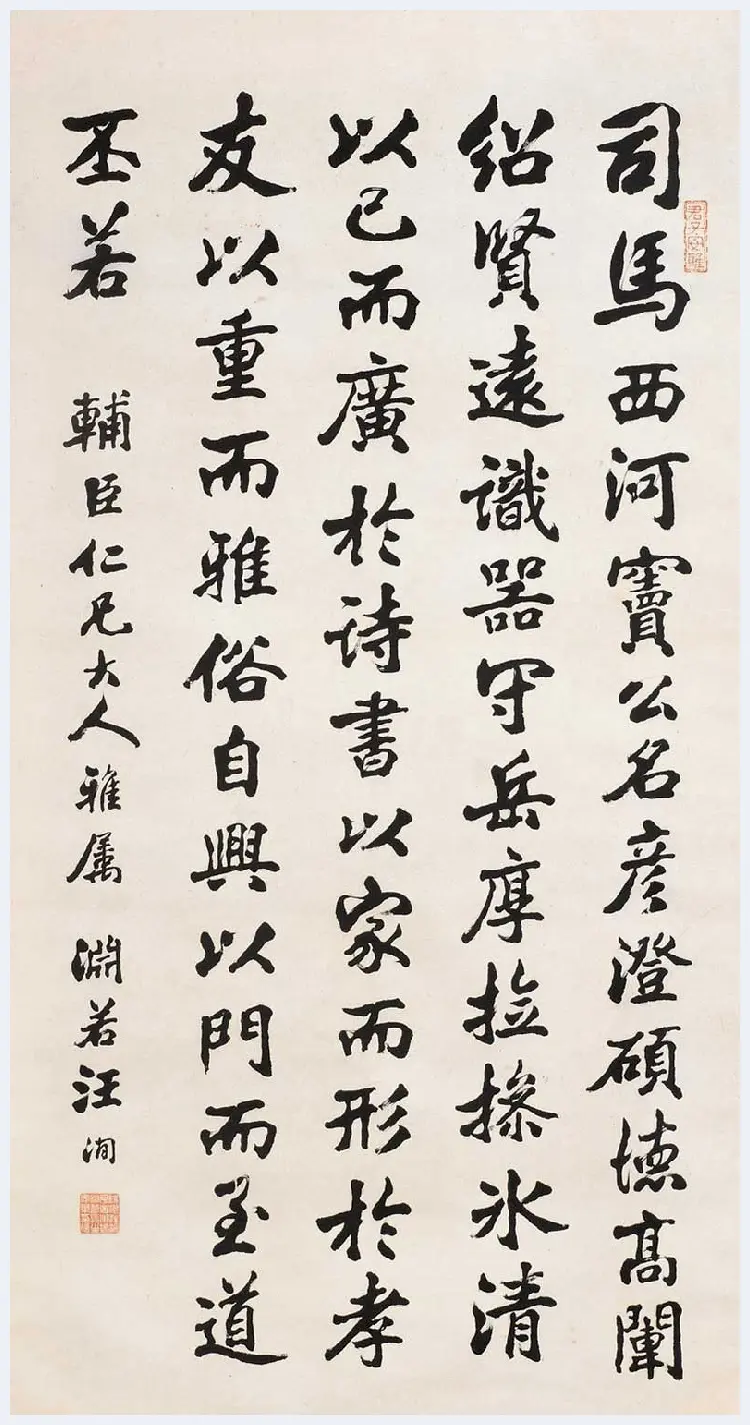 司馬西河竇公名彥澄碩德高闡
紹賢遠識器守岳厚撿操冰清
以己而廣於詩書以家而形於孝
友以重而雅俗自興以門而至道
丕若 輔臣仁兄大人雅屬 淵若汪洵
君子安雅